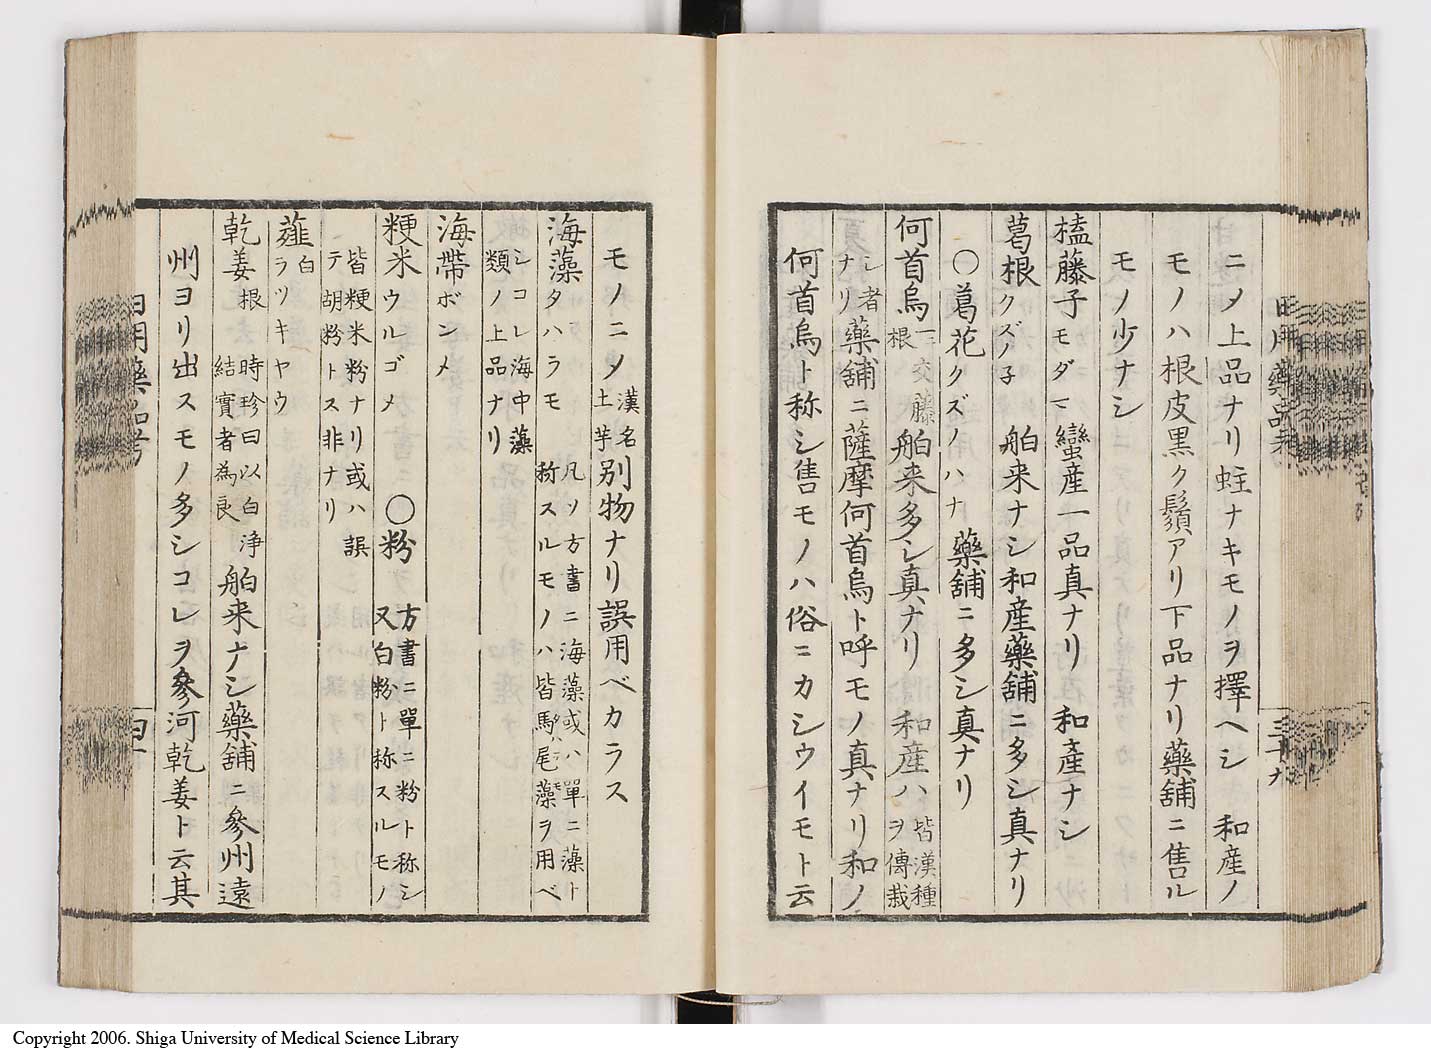 ニメ上品ナリ蛀ナキモノヲ擇ヘシ 和産ノ
モノハ根皮黒ク鬚アリ下品ナリ藥舖ニ售ル
モノ少ナシ
榼藤子モダマ 蠻産一品真ナリ 和産ナシ
葛根クズノ子 舶来ナシ和産藥舖ニ多シ真ナリ
〇葛花クズノハナ 藥舖ニ多シ真ナリ
何首烏一ニ交藤根 舶来多シ真ナリ 和産ハ皆漢種ヲ傳栽
シ者ナリ 藥舖ニ薩摩何首烏ト呼モノ真ナリ和ノ
何首烏ト称シ售モノハ俗ニカシウイモト云
モノニメ漢名土芋別物ナリ誤用ベカラス
海藻タハラモ 凡ソ方書ニ海藻或ハ單ニ藻ト称スルモノハ皆馬尾藻ヲ用ベ
シコレ海中藻類ノ上品ナリ
海帶ボンメ
粳米ウルゴメ 〇粉 方書ニ單ニ粉ト称シ又白粉ト称スルモノ
皆粳米粉ナリ或ハ誤テ胡粉トス非ナリ
薤白ラツキヤウ
乾姜根 時珍曰以白浄結實者為良 舶来ナシ藥舖ニ參州遠
州ヨリ出スモノ多シコレヲ參河乾姜ト云其
日用藥品考
四十
日用藥品考
三十九
Copyright 2006. Shiga University of Medical Science Library